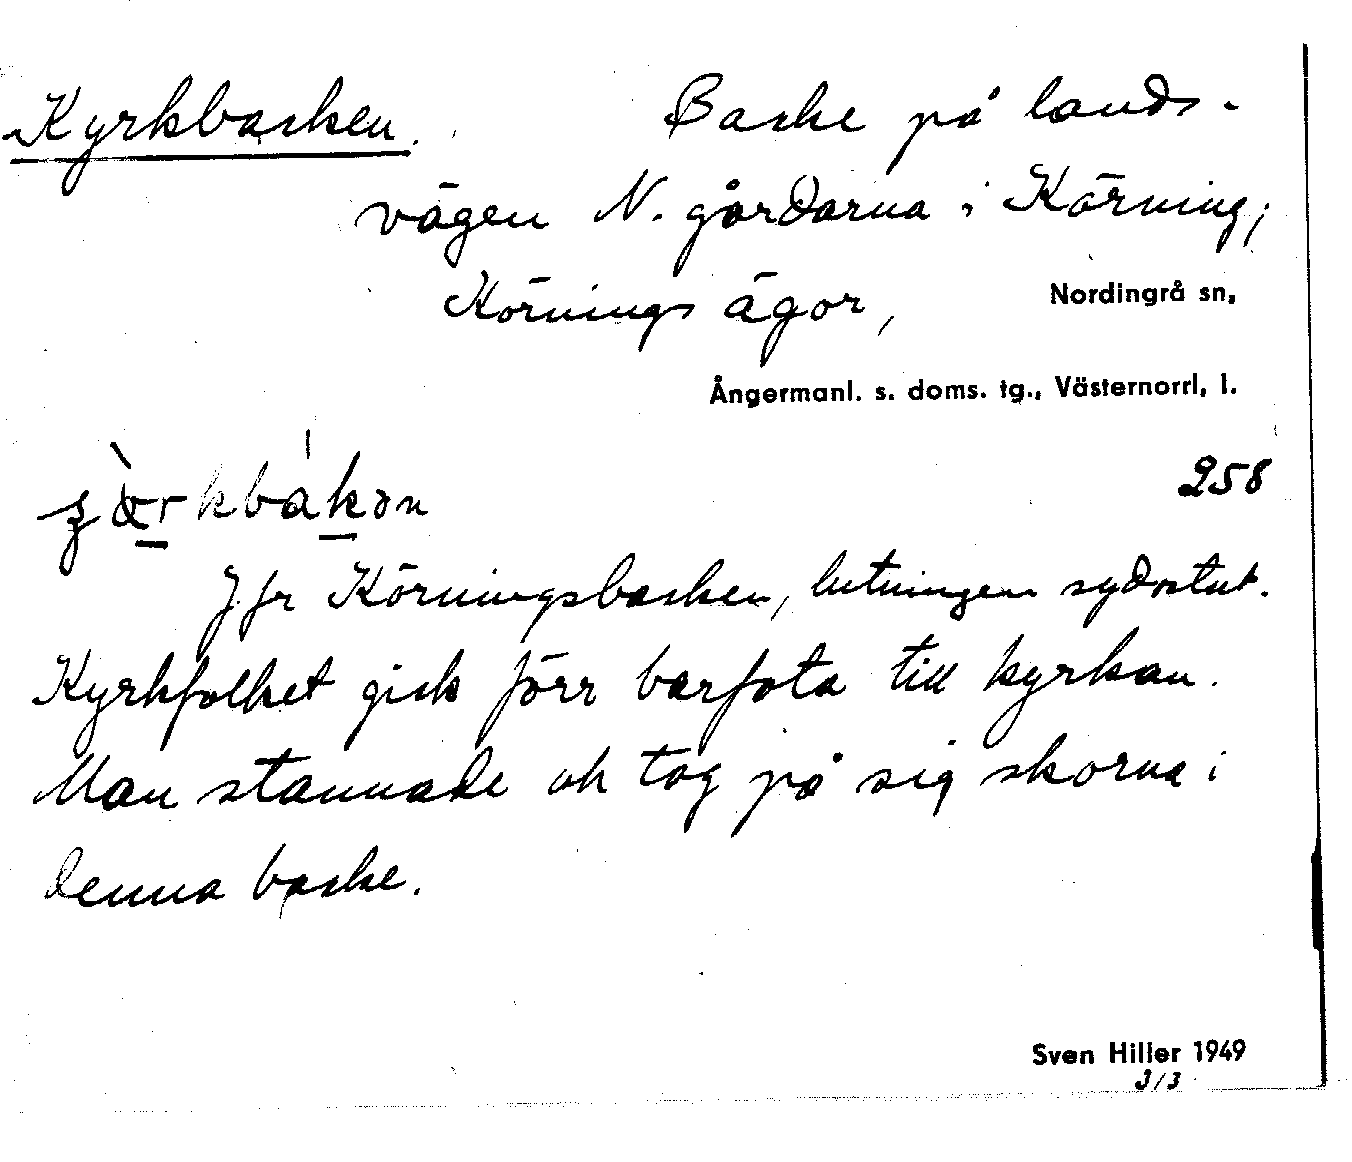 Kyrkbacken. Backe på lands-
vägen N. gårdarna i Körning,
Körnings ägor, Nordingrå sn,
Ångermanl. s. doms. tg., Västernorrl. l.
258
Jfr Körningsbacken, lutningen sydostut.
Kyrkfolket gick förr barfota till kyrkan.
Man stannade och tog på sig skorna i
denna backe.
Sven Hiller 1949
3/3